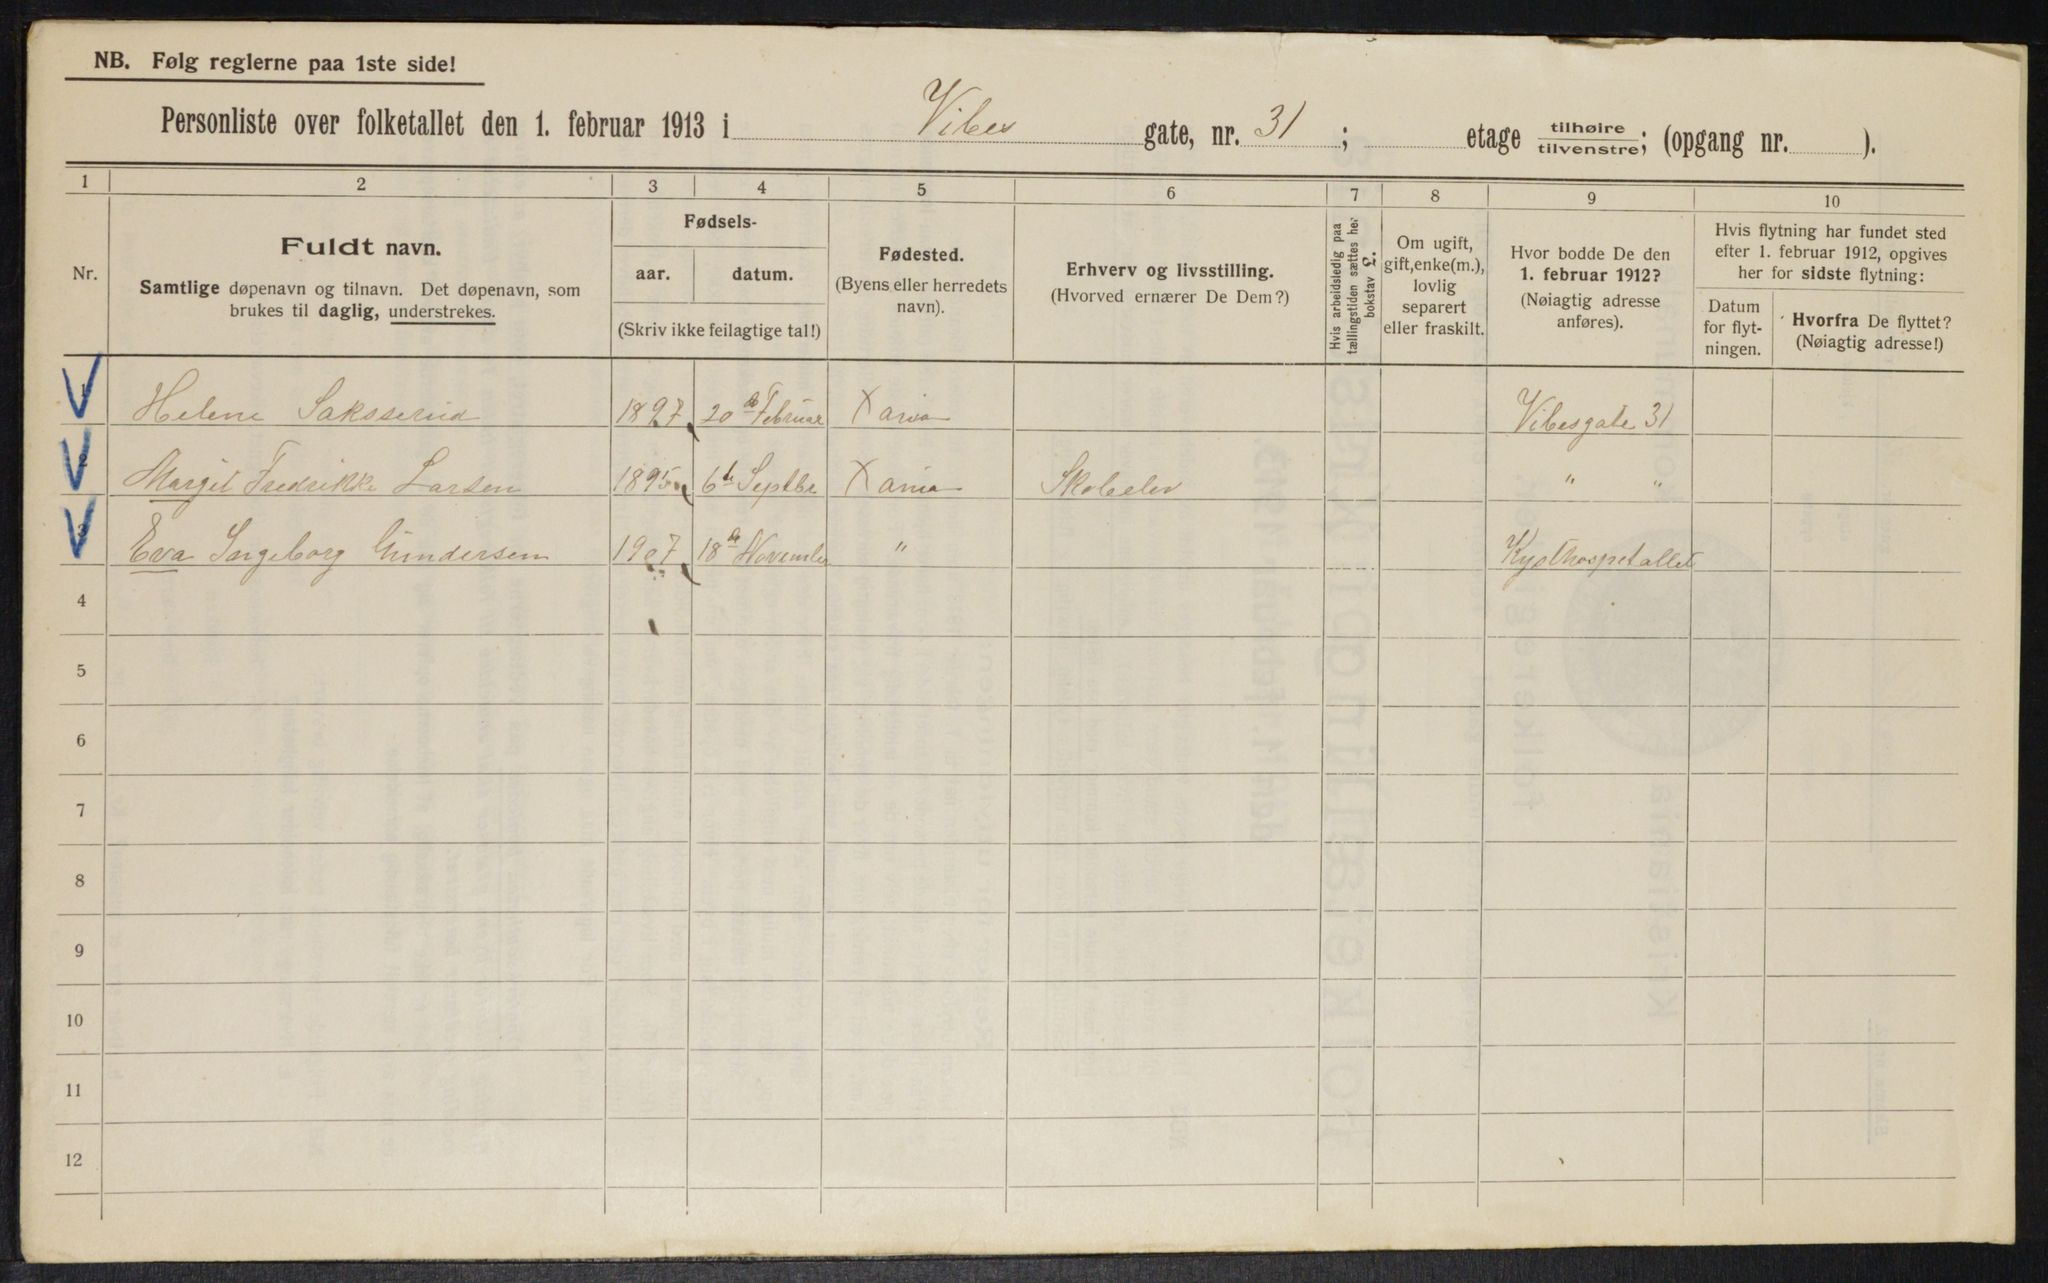 NB. Følg reglerne paa 1ste side!
Personliste over folketallet den 1. februar 1913 i Vibes gate, nr. 31 ; etage tilhøire tilvenstre; (opgang nr. ).
1 2 3 4 5 6 7 8 9 10
Nr.
Fuldt navn.
Samtlige døpenavn og tilnavn. Det døpenavn, som
brukes til daglig, understrekes.
Fødsels-
aar. datum.
(Skriv ikke feilagtige tal!)
Fødested.
(Byens eller herredets
navn).
Erhverv og livsstilling.
(Hvorved ernærer De Dem?)
Hvis arbeidsledig paa
tællingstiden sættes her
bokstav L.
Om ugift,
gift, enke(m.),
lovlig
separert
eller fraskilt.
Hvor bodde De den
1. februar 1912?
(Nøiagtig adresse
anføres).
Hvis flytning har fundet sted
efter 1. februar 1912, opgives
her for sidste flytning:
Datum
for flyt-
ningen.
Hvorfra De flyttet?
(Nøiagtig adresse!)
1 Helene Saksserud 1897 20de Februar Xania Vibesgate 31
2 Margit Fredrikke Larsen 1895 6te Septbr Xania Skoleelev " "
3 Eva Ingeborg Gundersen 1907 18de November " Kysthospetallet
4
5
6
7
8
9
10
11
12